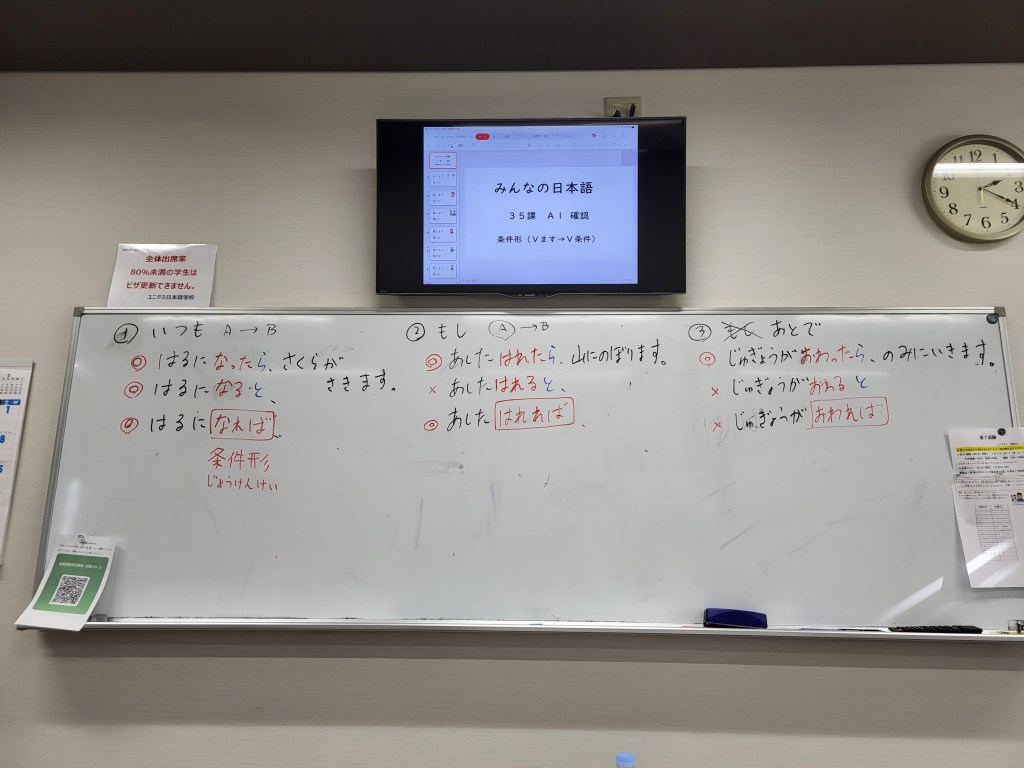 みんなの日本語
35課 A1 確認
条件形（Vます→V条件）
全体出席率
80%未満の学生は
ビザ更新できません。
ユニタス日本語学校
① いつも A→B
◎ はるに なったら、さくらが
さきます。
◎ はるに なると、
◎ はるに なれば、
条件形
じょうけんけい
② もし Ⓐ→B
◎ あした はれたら、山にのぼります。
× あした はれると、
◎ あした はれれば、
③ もし あとで
◎ じゅぎょうが おわったら、のみにいきます。
× じゅぎょうが おわると
× じゅぎょうが おわれば
12
1
2
3
4
5
6
7
8
9
10
11